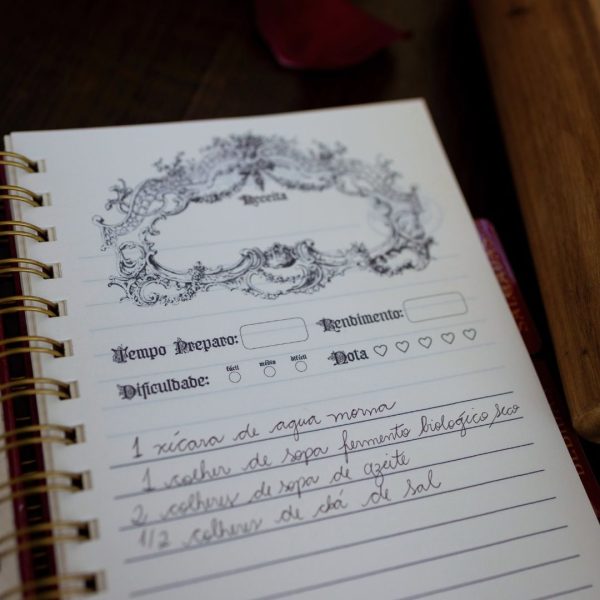 Receita
Tempo Preparo:
Rendimento:
Dificuldade:
fácil
médio
difícil
Nota
1 xícara de agua morna
1 colher de sopa fermento biologico seco
2 colheres de sopa de azeite
1/2 colheres de chá de sal